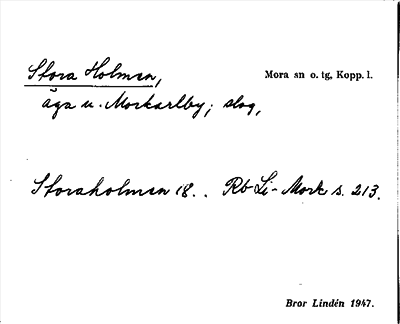 Stora Holmen, Mora sn o. tg, Kopp. l.
äga u. Morkarlby; slog,
Storaholmen 18. . Rb Li-Mork s. 213.
Bror Lindén 1947.